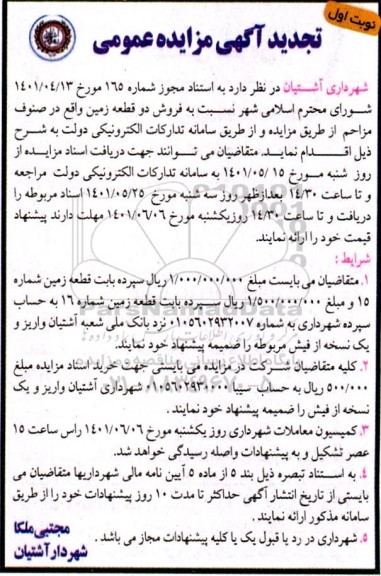 نوبت اول
تجدید آگهی مزایده عمومی
شهرداری آشتیان در نظر دارد به استناد مجوز شماره ۱۶۵ مورخ ۱۴۰۱/۰۴/۱۳
شورای محترم اسلامی شهر نسبت به فروش دو قطعه زمین واقع در صنوف
مزاحم از طریق مزایده و از طریق سامانه تدارکات الکترونیکی دولت به شرح
ذیل اقدام نماید. متقاضیان می توانند جهت دریافت اسناد مزایده از
روز شنبه مورخ ۱۴۰۱/۰۵/۱۵ به سامانه تدارکات الکترونیکی دولت مراجعه
و تا ساعت ۱۴/۳۰ بعدازظهر روز سه شنبه مورخ ۱۴۰۱/۰۵/۲۵ اسناد مربوطه را
دریافت و تا ساعت ۱۴/۳۰ روزیکشنبه مورخ ۱۴۰۱/۰۶/۰۶ مهلت دارند پیشنهاد
قیمت خود را ارائه نمایند.
شرایط :
۱. متقاضیان می بایست مبلغ ۱/۰۰۰/۰۰۰/۰۰۰ ریال سپرده بابت قطعه زمین شماره
۱۵ و مبلغ ۱/۵۰۰/۰۰۰/۰۰۰ ریال سپرده بابت قطعه زمین شماره ۱۶ به حساب
سپرده شهرداری به شماره ۰۱۰۵۶۰۲۹۳۲۰۰۷ نزد بانک ملی شعبه آشتیان واریز و
یک نسخه از فیش مربوطه را ضمیمه پیشنهاد خود نمایند.
۲. کلیه متقاضیان شرکت در مزایده می بایستی جهت خرید اسناد مزایده مبلغ
۵۰۰/۰۰۰ ریال به حساب سیبا شهرداری آشتیان واریز و یک
نسخه از فیش را ضمیمه پیشنهاد خود نمایند.
۳. کمیسیون معاملات شهرداری روز یکشنبه مورخ ۱۴۰۱/۰۶/۰۶ راس ساعت ۱۵
عصر تشکیل و به پیشنهادات واصله رسیدگی خواهد شد.
۴. به استناد تبصره ذیل بند ۵ از ماده ۵ آیین نامه مالی شهرداریها متقاضیان می
بایستی از تاریخ انتشار آگهی حداکثر تا مدت ۱۰ روز پیشنهادات خود را از طریق
سامانه مذکور ارائه نمایند .
۵. شهرداری در رد یا قبول یک یا کلیه پیشنهادات مجاز می باشد .
مجتبی ملکا
شهردار آشتیان
ParsNamadData